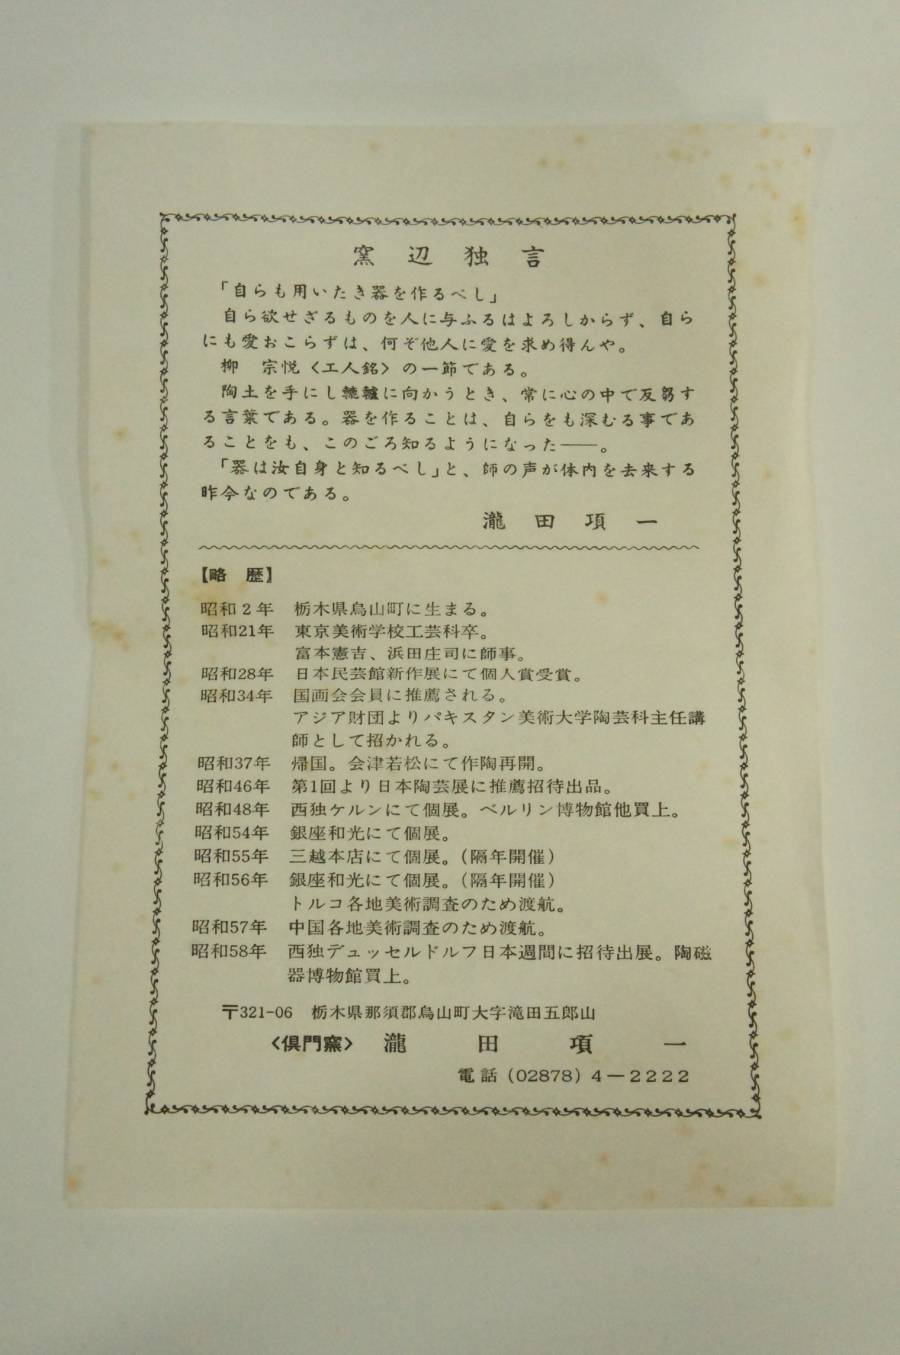 窯辺独言
「自らも用いたき器を作るべし」
自ら欲せざるものを人に与ふるはよろしからず、自ら
にも愛おこらずは、何ぞ他人に愛を求め得んや。
柳　宗悦〈工人銘〉の一節である。
陶土を手にし轆轤に向かうとき、常に心の中で反芻す
る言葉である。器を作ることは、自らをも深むる事であ
ることをも、このごろ知るようになった──。
「器は汝自身と知るべし」と、師の声が体内を去来する
昨今なのである。
瀧田項一
【略　歴】
昭和2年　栃木県烏山町に生まる。
昭和21年　東京美術学校工芸科卒。
富本憲吉、浜田庄司に師事。
昭和28年　日本民芸館新作展にて個人賞受賞。
昭和34年　国画会会員に推薦される。
アジア財団よりパキスタン美術大学陶芸科主任講
師として招かれる。
昭和37年　帰国。会津若松にて作陶再開。
昭和46年　第1回より日本陶芸展に推薦招待出品。
昭和48年　西独ケルンにて個展。ベルリン博物館他買上。
昭和54年　銀座和光にて個展。
昭和55年　三越本店にて個展。（隔年開催）
昭和56年　銀座和光にて個展。（隔年開催）
トルコ各地美術調査のため渡航。
昭和57年　中国各地美術調査のため渡航。
昭和58年　西独デュッセルドルフ日本週間に招待出展。陶磁
器博物館買上。
〒321-06　栃木県那須郡烏山町大字滝田五郎山
〈倶門窯〉　瀧田項一
電話（02878）4－2222